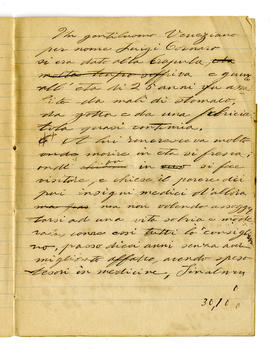 Un gentiluomo Veneziano
per nome Luigi Cornaro
si era dato alla crapula,
molto tempo soffriva e giun
all'età di 25 anni fu assa
lito da mali di stomaco,
da gotta e da una
lenta quasi continua.
A lui rincresceva molto
morire in età sì fresca,
ondi si fece
visitare, e chiese il parere dei
più insigni medici d'allora
ma non volendo assogget
tarsi ad una vita sobria e mode
rata come così tutti lo consiglia
no, passò dieci anni senza aver
migliorato affatto, avendo speso
tesori in medicine, Finalmen
30/10